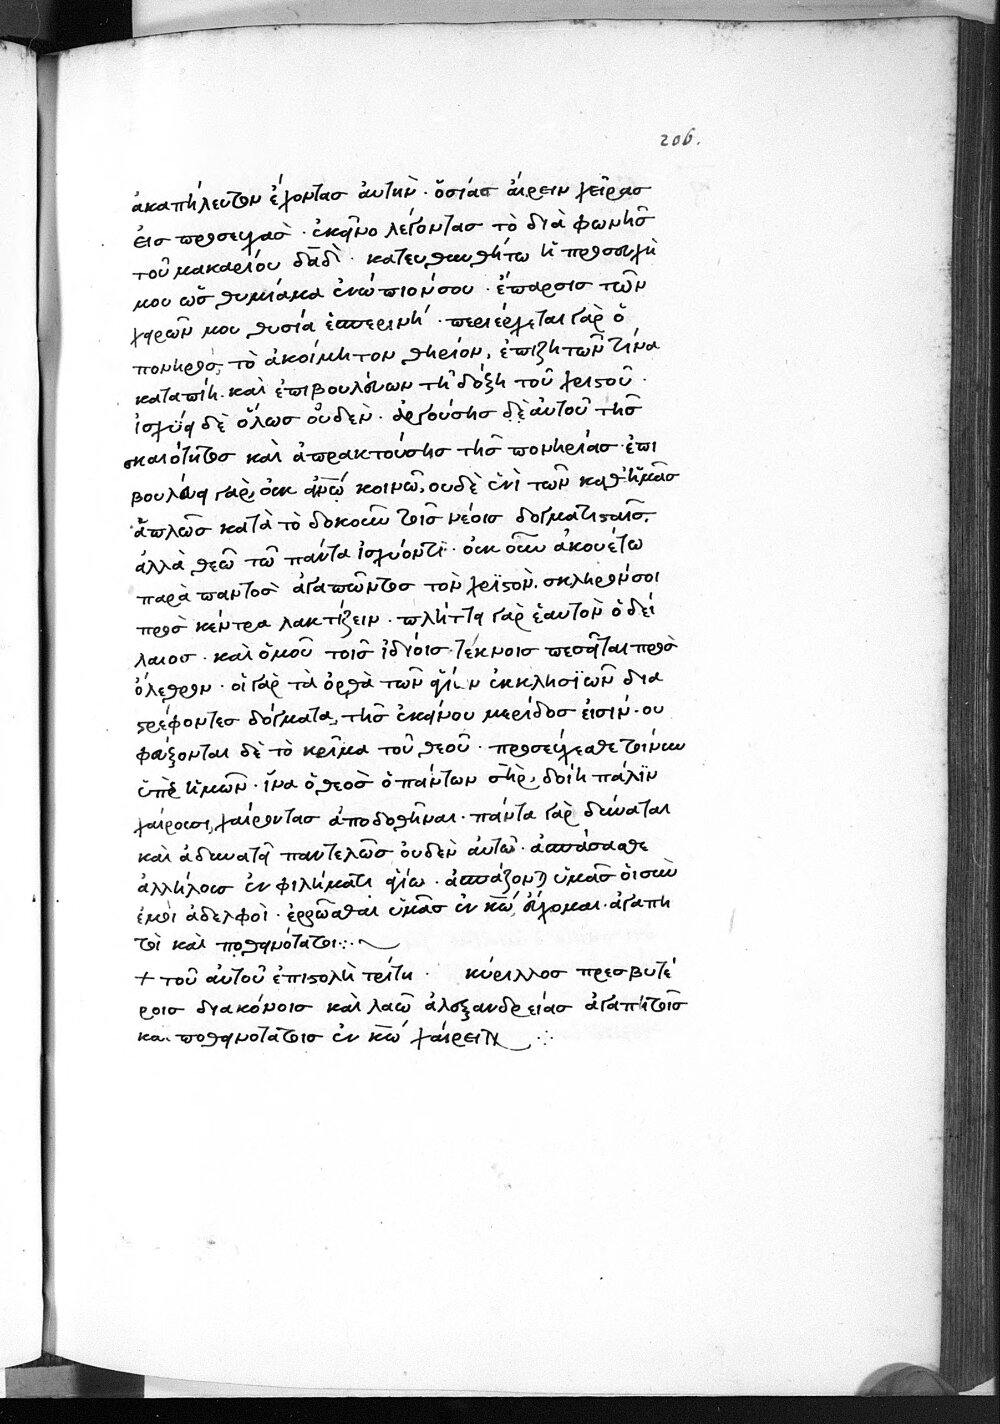 206.
ἀκαπήλευτον ἔχοντας αὐτὴν · ὁσίας αἴρειν χεῖρας
εἰς προσευχὰς · ἐκεῖνο λέγοντας τὸ διὰ φωνῆς
τοῦ μακαρίου δᾱδ̄ · κατευθυνθήτω ἡ προσευχὴ
μου ὡς θυμίαμα ἐνώπιόν σου · ἔπαρσις τῶν
χειρῶν μου θυσία ἑσπερινή · περιέρχεται γὰρ ὁ
πονηρὸς, τὸ ἀκοίμητον θηρίον, ἐπιζητῶν τίνα
καταπίῃ · καὶ ἐπιβουλεύων τῇ δόξῃ τοῦ χριστοῦ ·
ἰσχύει δὲ ὅλως οὐδὲν · ἀργούσης δὲ αὐτοῦ τῆς
σκαιότητος καὶ ἀπρακτούσης τῆς πονηρίας · ἐπι
βουλεύει γὰρ οὐκ ἀν̄ω̄ κοινῷ, οὐδὲ ἑνὶ τῶν καθ' ἡμᾶς
ἁπλῶς κατὰ τὸ δοκοῦν τοῖς νέοις δογματισταῖς,
ἀλλὰ θεῷ τῷ πάντα ἰσχύοντι · οὐκ οῦν ἀκουέτω
παρὰ παντὸς ἀγαπῶντος τὸν χριστὸν, σκληρόν σοι
πρὸς κέντρα λακτίζειν · πλήττει γὰρ ἑαυτὸν ὁ δεί
λαιος · καὶ ὁμοῦ τοῖς ἰδίοις τέκνοις πεσεῖται πρὸς
ὄλεθρον · οἱ γὰρ τὰ ὀρθὰ τῶν ἁγίων ἐκκλησιῶν δια
στρέφοντες δόγματα, τῆς ἐκείνου μερίδος εἰσίν · οὐ
φεύξονται δὲ τὸ κρῖμα τοῦ θεοῦ · προσεύχεσθε τοίνυν
ὑπὲρ ἡμῶν · ἵνα ὁ θεὸς ὁ πάντων σ̄η̄ρ, δοίη πάλιν
χαίρουσι, χαίροντας ἀποδοθῆναι · πάντα γὰρ δύναται
καὶ ἀδυνατεῖ παντελῶς οὐδὲν αὐτῷ · ἀσπάσασθε
ἀλλήλους ἐν φιλήματι ἁγίω · ἀσπάζονται ὑμᾶς οἱ σὺν
ἐμοὶ ἀδελφοὶ · ἐρρῶσθαι ὑμᾶς ἐν κ̄ω̄, εὔχομαι · ἀγαπη
τοὶ καὶ ποθεινότατοι ∴ ~
+ τοῦ αὐτοῦ ἐπιστολὴ τρίτη · κύριλλος πρεσβυτέ
ροις διακόνοις καὶ λαῷ ἀλεξανδρείας ἀγαπητοῖς
και ποθεινοτάτοις ἐν κ̄ω̄ χαίρειν ∴